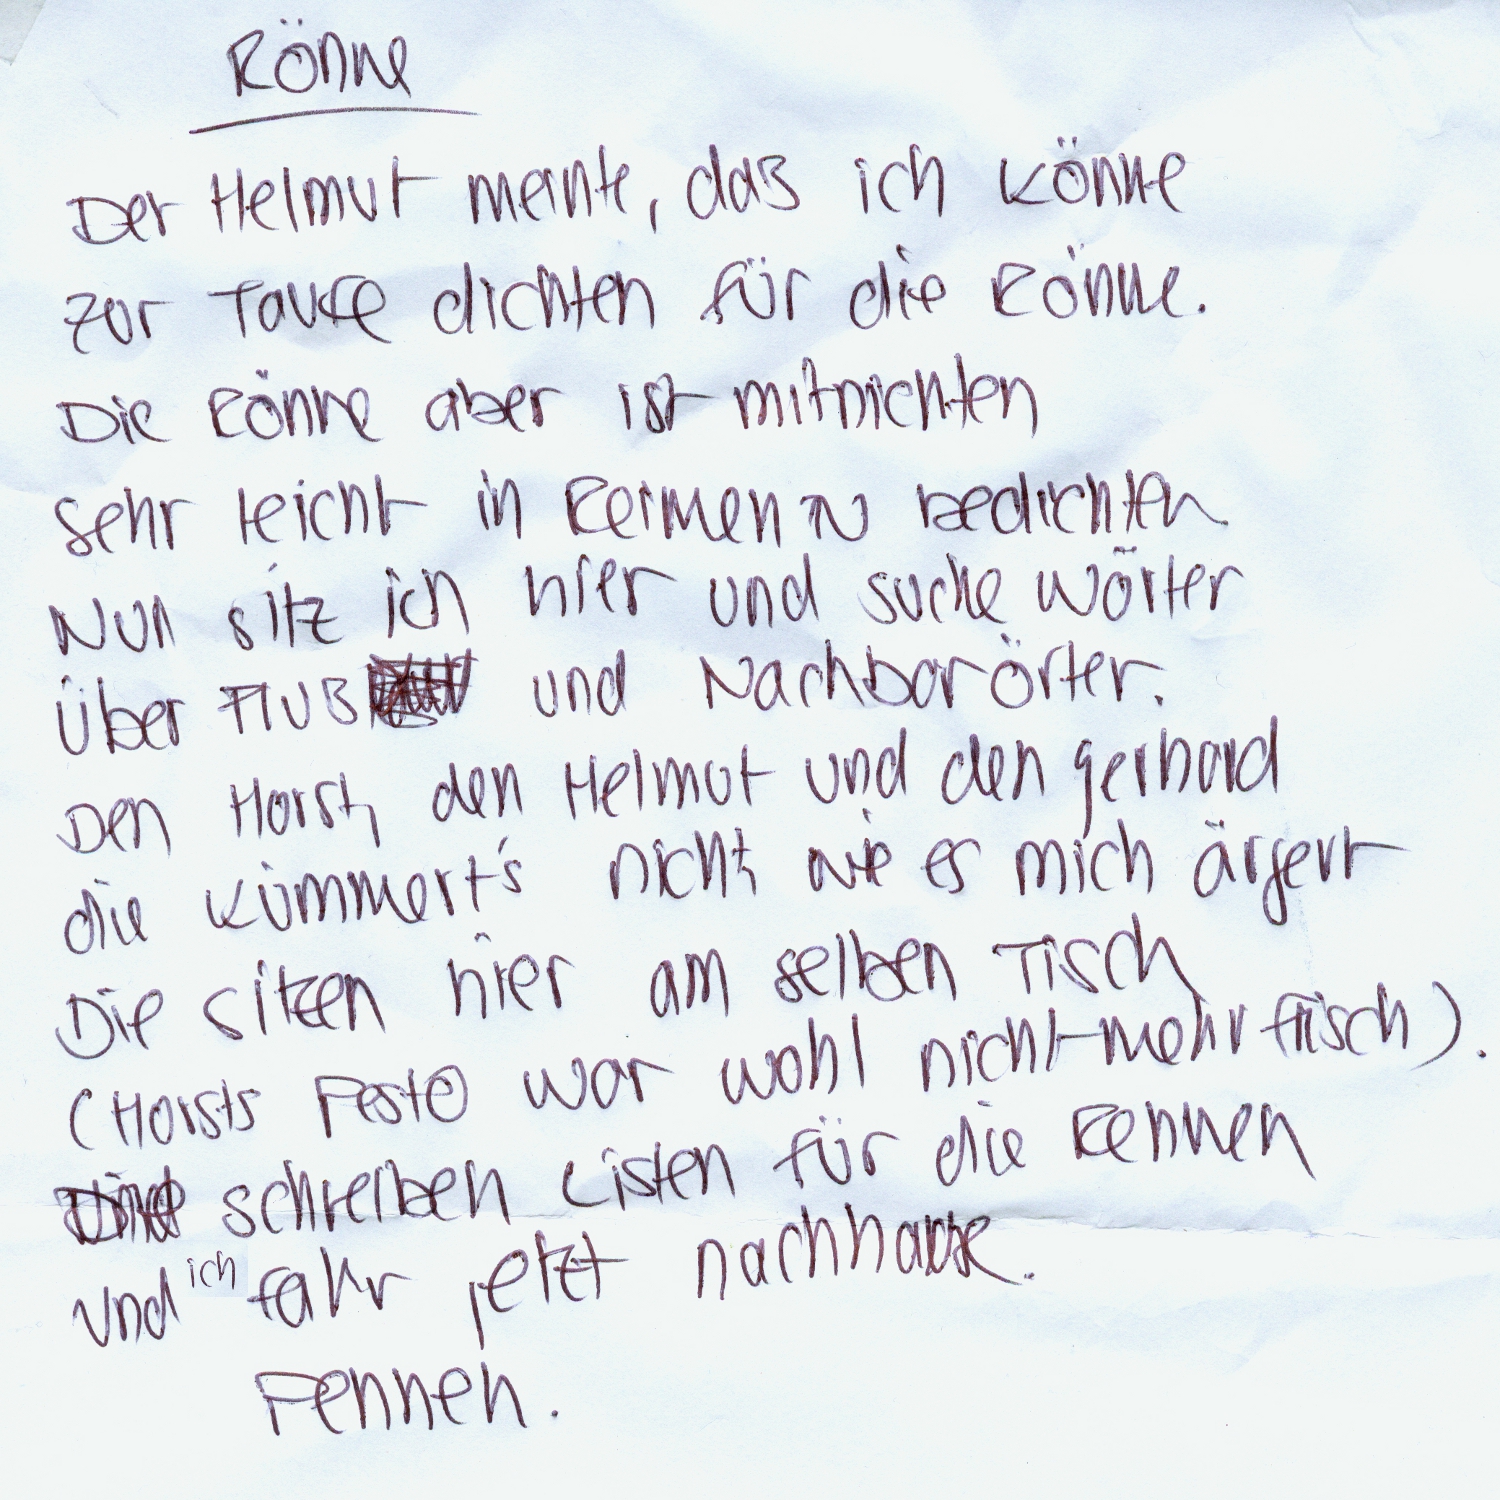 Rönne
Der Helmut meinte, daß ich könne
zur Taufe dichten für die Rönne.
Die Rönne aber ist mitnichten
sehr leicht in Reimen zu bedichten
Nun sitz ich hier und suche Wörter
Über Fluß und Nachbarörter.
Den Horst, den Helmut und den gerhard
die kümmert's nicht, wie es mich ärgert
Die sitzen hier am selben Tisch
(Horsts Pesto war wohl nicht mehr frisch).
schreiben Listen für die Rennen
und ich fahr jetzt nachhause.
Pennen.